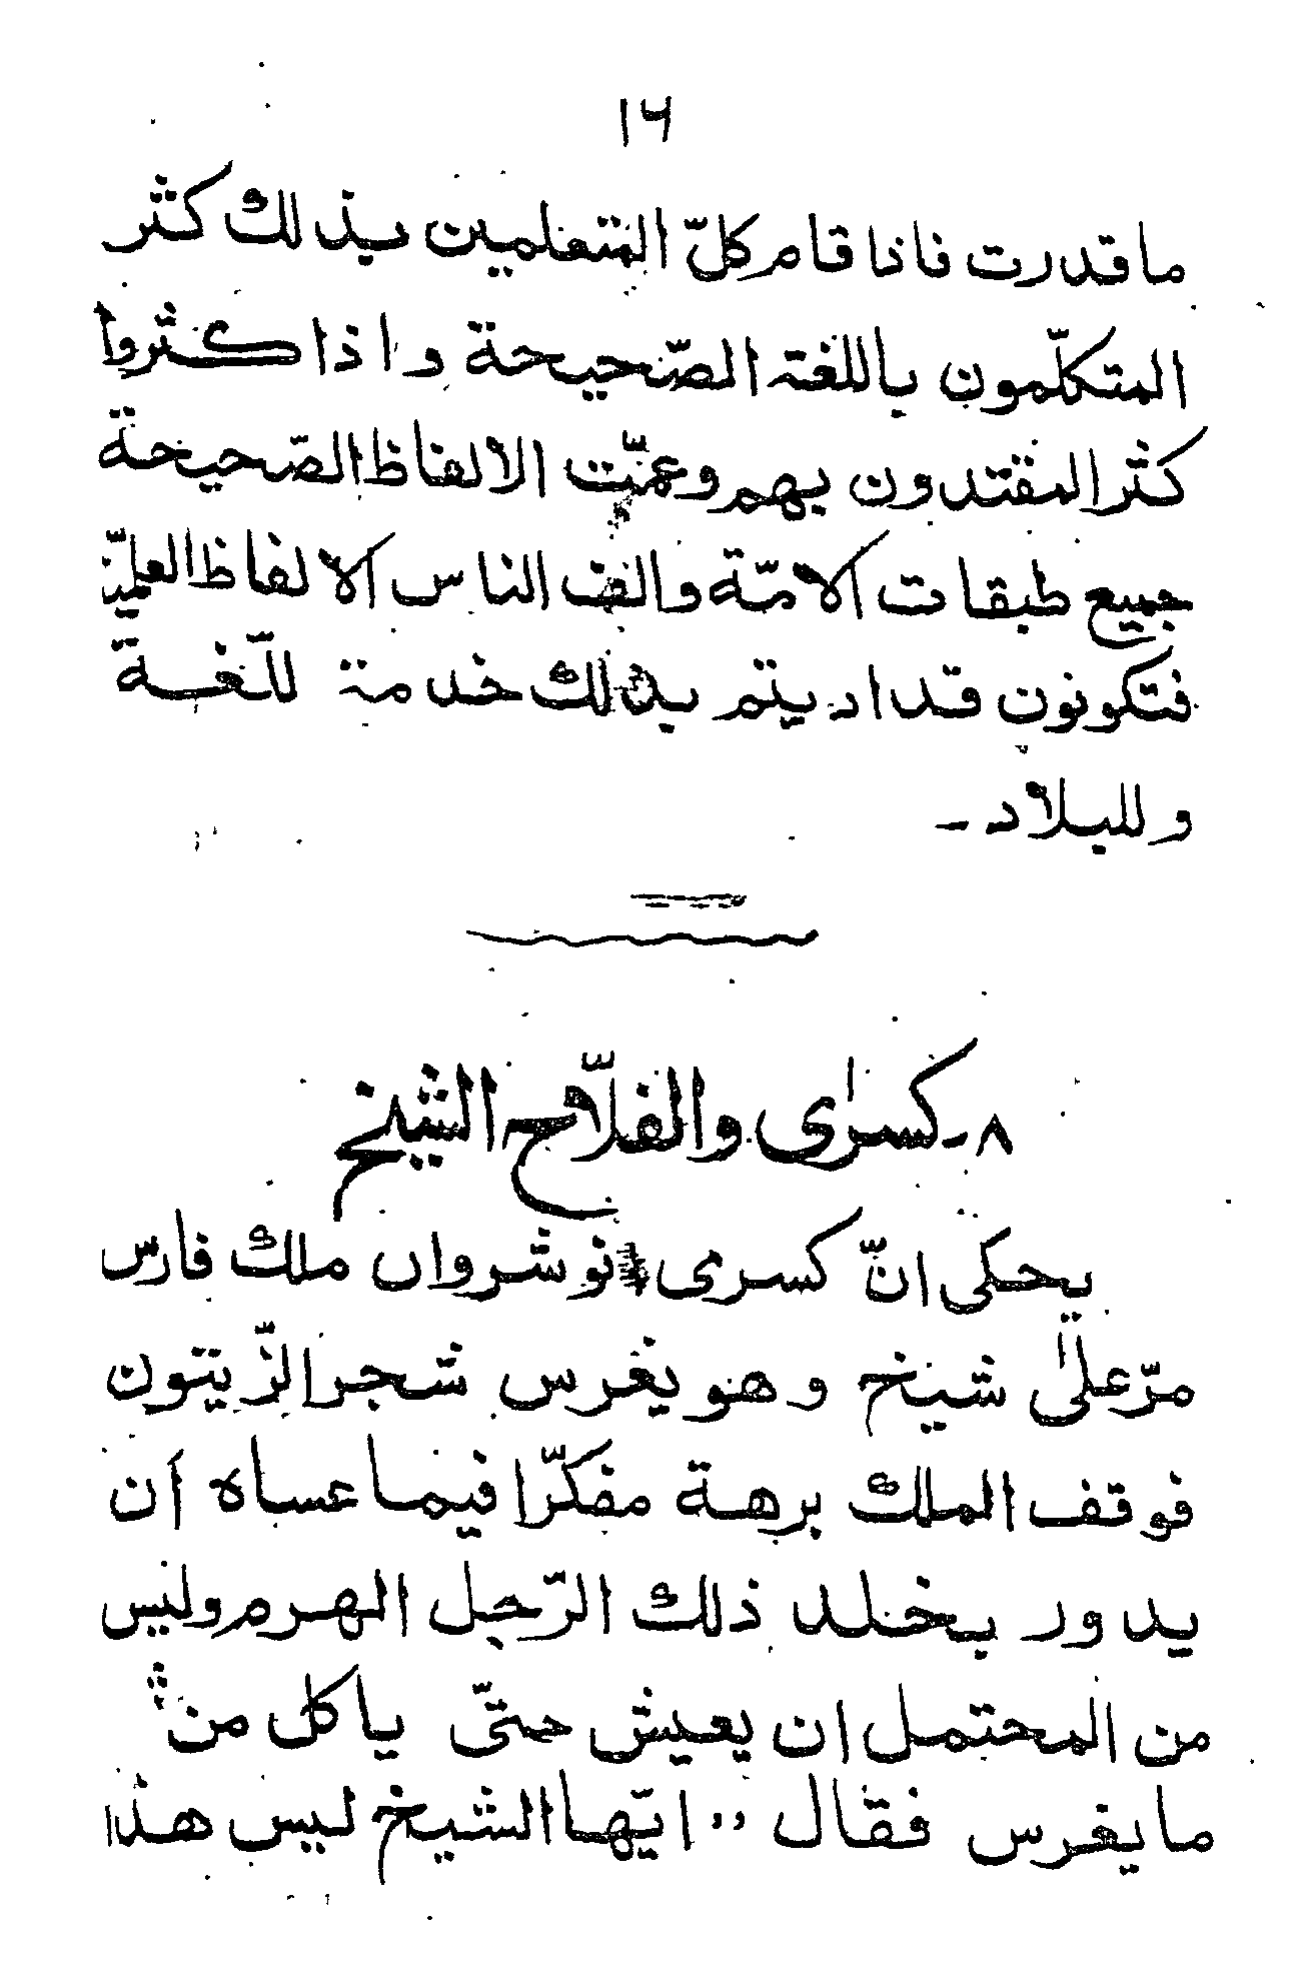 ١٦
ما قدرت فاذا قام كلّ المتعلمين بذلك كثر
المتكلّمون باللغة الصّحيحة و اذا كثروا
كثر المقتدون بهم وعمّت الالفاظ الصّحيحة
جميع طبقات الامّة والف الناس الالفاظ العلميّة
فتكونون قد اديتم بذلك خدمة للّغة
وللبلاد -
٨- كسرٰى والفلّاح الشيخ
يحكى انّ كسرى نوشروان ملك فارس
مرّ علىٰ شيخ وهو يغرس شجر الزّيتون
فوقف الملك برهة مفكّرا فيما عساه أن
يدور بخلد ذلك الرّجل الهرم وليس
من المحتمل ان يعيش حتّى ياكل من ثمر
ما يغرس فقال ,, ايّها الشيخ ليس هذا